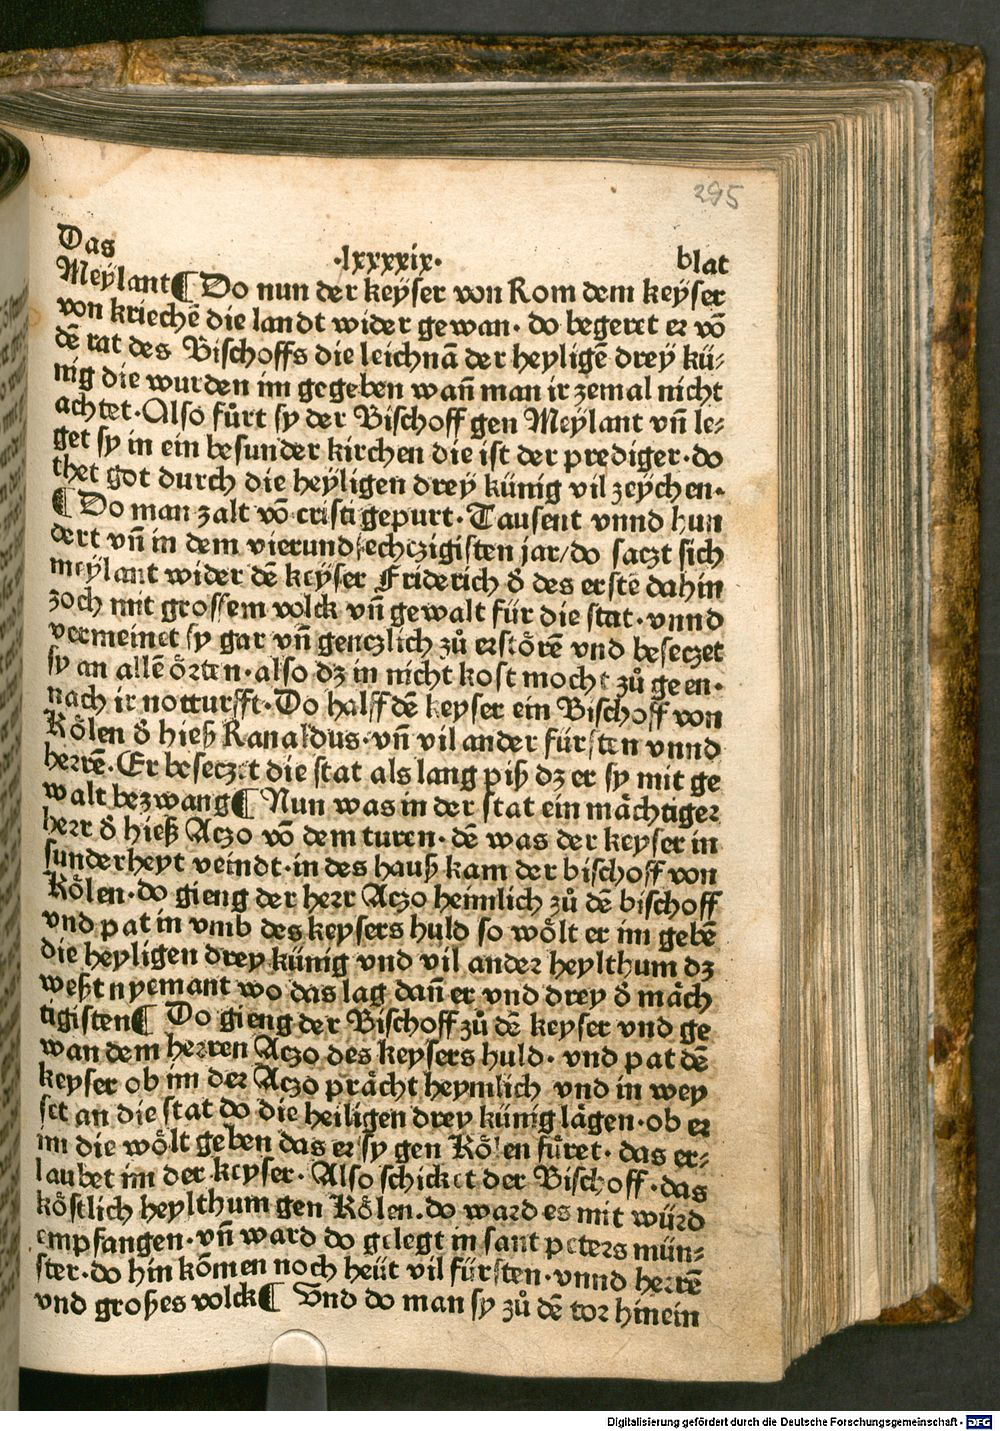 295
Das ·lxxxxix· blat
Meÿlant¶ Do nun der keÿser von Rom dem keÿser
von kriechē die landt wider gewan· do begeret er vō
dē rat des Bischoffs die leichnā der heyligē dreÿ kü⸗
nig die wurden im gegeben wañ man ir zemal nicht
achtet·Also fůrt sy der Bischoff gen Meÿlant vñ le⸗
get sy in ein besunder kirchen die ist der prediger·do
thet got durch die heÿligen dreÿ künig vil zeÿchen·
¶ Do man zalt vō cristi gepurt·Tausent vnnd hun
dert vñ in dem vierundsechczigisten jar/do saczt sich
meÿlant wider dē keÿser Friderich d̕ des erstē dahin
zoch mit grossem volck vñ gewalt für die stat·vnnd
vermeinet sy gar vñ genczlich zů erstörē vnd beseczet
sy an allē örten·also dz in nicht kost mocht zů geen·
nach ir notturfft·Do halff dē keyser ein Bischoff von
Kölen d̕ hieß Ranaldus·vñ vil ander fürsten vnnd
herrē·Er beseczet die stat als lang piß dz er sy mit ge
walt bezwang¶ Nun was in der stat ein mächtiger
herr d̕ hieß Aczo vō dem turen·dē was der keyser in
sunderheyt veindt·in des hauß kam der bischoff von
Kölen·do gieng der herr Aczo heimlich zů dē bischoff
vnd pat in vmb des keysers huld so wölt er im gebē
die heyligen drey künig vnd vil ander heylthum dz
weßt nyemant wo das lag dañ er vnd drey d̕ mäch
tigisten¶ Do gieng der Bischoff zů dē keyser vnd ge
wan dem herren Aczo des keysers huld· vnd pat dē
keyser ob im der Aczo prächt heymlich vnd in wey
set an die stat do die heiligen drey künig lägen·ob er
im die wölt geben das er sy gen Kölen fůret·das er⸗
laubet im der keyser·Also schicket der Bischoff·das
köstlich heylthum gen Kölen·do ward es mit würd
empfangen·vñ ward do gelegt in sant peters mün⸗
ster·do hin kōmen noch heüt vil fürsten·vnnd herrē
vnd großes volck¶ Vnd do man sy zů dē tor hinein
Digitalisierung gefördert durch die Deutsche Forschungsgemeinschaft - DFG